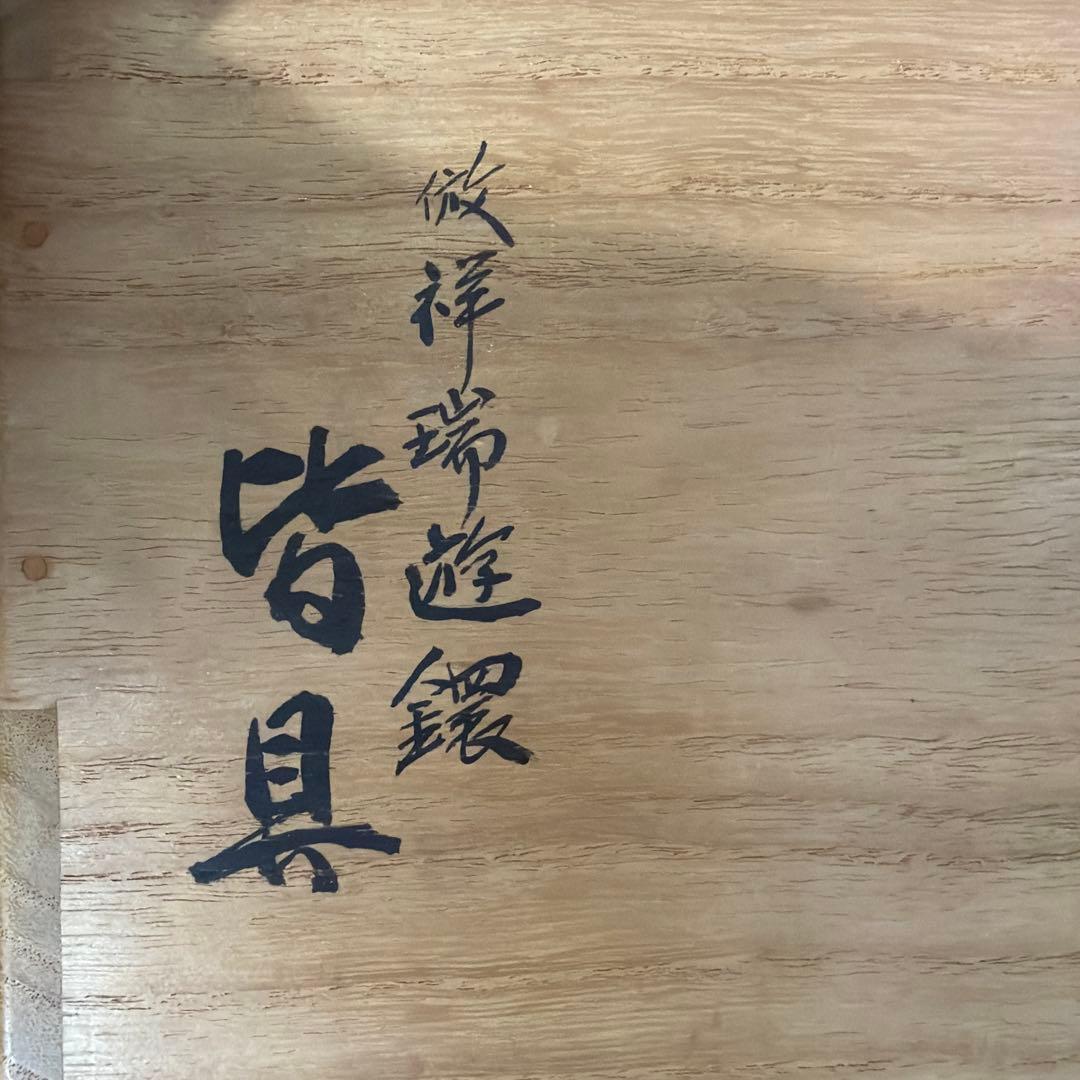 倣祥瑞遊鐶
皆具